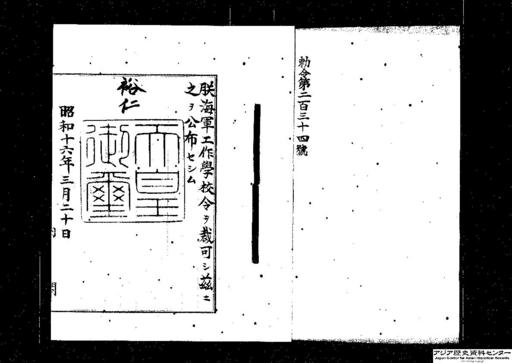 勅令第二百三十四號
朕海軍工作學校令ヲ裁可シ茲ニ
之ヲ公布セシム
裕仁
天皇
御璽
昭和十六年三月二十日
内閣
アジア歴史資料センター
Japan Center for Asian Historical Records